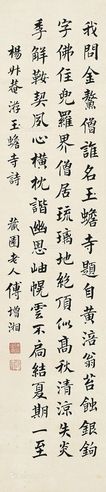 我問金鰲僧誰名玉蟾寺題自黃涪翁苔蝕銀鉤
字佛住兜羅界僧居琉璃地絕頂似高秋清涼失炎
季解鞍契夙心橫枕諧幽思岫幌雲不扃結夏期一至
楊升菴游玉蟾寺詩 藏園老人傅增湘